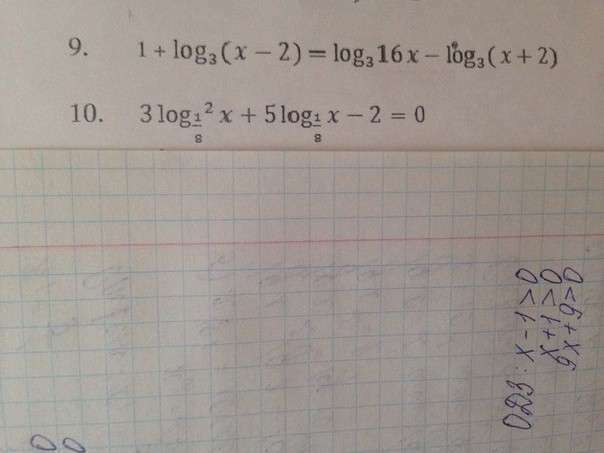 9. 1 + log₃(x − 2) = log₃16x − log₃(x + 2)
10. 3 log_{1/8}² x + 5 log_{1/8} x − 2 = 0
ОДЗ: x - 1 > 0
x + 1 > 0
9x + 9 > 0